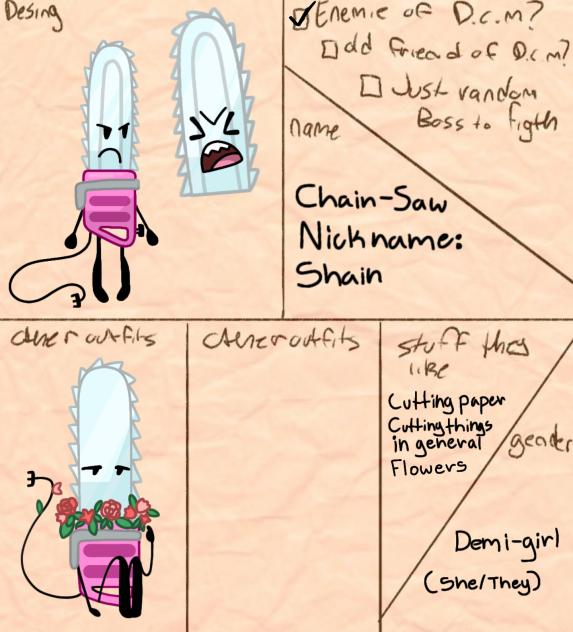 Desing
Enemie of D.c.m?
old friend of D.c.m?
Just random
Boss to figth
name
Chain-Saw
Nickname:
Shain
other outfits
other outfits
stuff they
like
Cutting paper
Cutting things
in general
Flowers
gender
Demi-girl
(She/They)